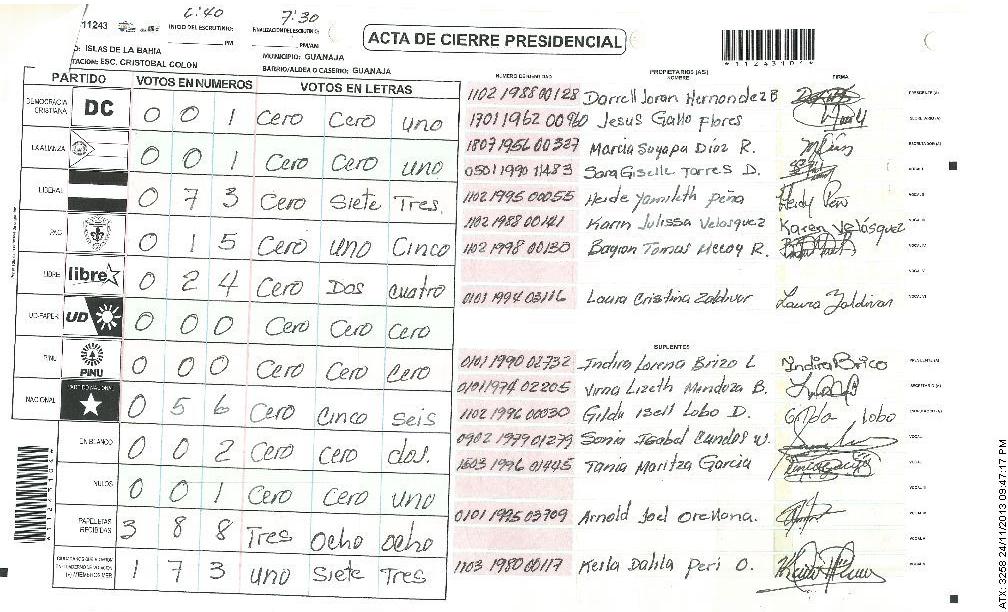 6:40 7:30
11243 INICIO DEL ESCRUTINIO: PM FINALIZACION DEL ESCRUTINIO: PM/AM
ACTA DE CIERRE PRESIDENCIAL
O: ISLAS DE LA BAHIA MUNICIPIO: GUANAJA
TACION: ESC. CRISTOBAL COLON BARRIO/ALDEA O CASERIO: GUANAJA
PARTIDO VOTOS EN NUMEROS VOTOS EN LETRAS
DEMOCRACIA CRISTIANA DC 0 0 1 Cero Cero uno
LA ALIANZA 0 0 1 Cero Cero uno
LIBERAL 0 7 3 Cero Siete Tres.
PAC 0 1 5 Cero uno Cinco
LIBRE libre 0 2 4 Cero Dos cuatro
UD-FAPER UD 0 0 0 Cero Cero cero
PINU PINU 0 0 0 Cero Cero cero
NACIONAL PARTIDO NACIONAL 0 5 6 Cero Cinco seis
EN BLANCO 0 0 2 Cero Cero dos.
NULOS 0 0 1 Cero Cero uno
PAPELETAS RECIBIDAS 3 8 8 Tres ocho ocho
1 7 3 uno Siete Tres
NUMERO DE IDENTIDAD PROPIETARIOS (AS) NOMBRE FIRMA
1102 1988 00128 Darrell Joran Hernandez B PRESIDENTE (A)
1701 1962 00960 Jesus Gallo Flores SECRETARIO (A)
1807 1956 00327 Marcia Suyapa Díaz R. ESCRUTADOR (A)
0501 1990 11483 Sara Giselle Torres D. VOCAL I
1102 1995 00055 Heide Yamileth Peña Heidy Peña VOCAL II
1102 1988 00141 Karin Julissa Velasquez Karen Velásquez VOCAL III
1102 1998 00130 Bayron Tomas McCoy R. VOCAL IV
VOCAL V
0101 1994 03116 Laura Cristina Zaldivar Laura Zaldivar VOCAL VI
SUPLENTES
0101 1990 02732 Indira Lorena Brizo L Indira Brico PRESIDENTE (A)
0101 1974 02205 Virna Lizeth Mendoza B. SECRETARIO (A)
1102 1996 00030 Gilda Isell Lobo D. Gilda lobo ESCRUTADOR (A)
0902 1979 01279 Sonia Isabel W. VOCAL I
1503 1996 01445 Tania Maritza Garcia VOCAL II
VOCAL III
0101 1995 03709 Arnold Joel Orellana. VOCAL IV
VOCAL V
1103 1980 00117 Keila Dalila Peri O. VOCAL VI
ATX: 3258 24/11/2013 09:47:17 PM